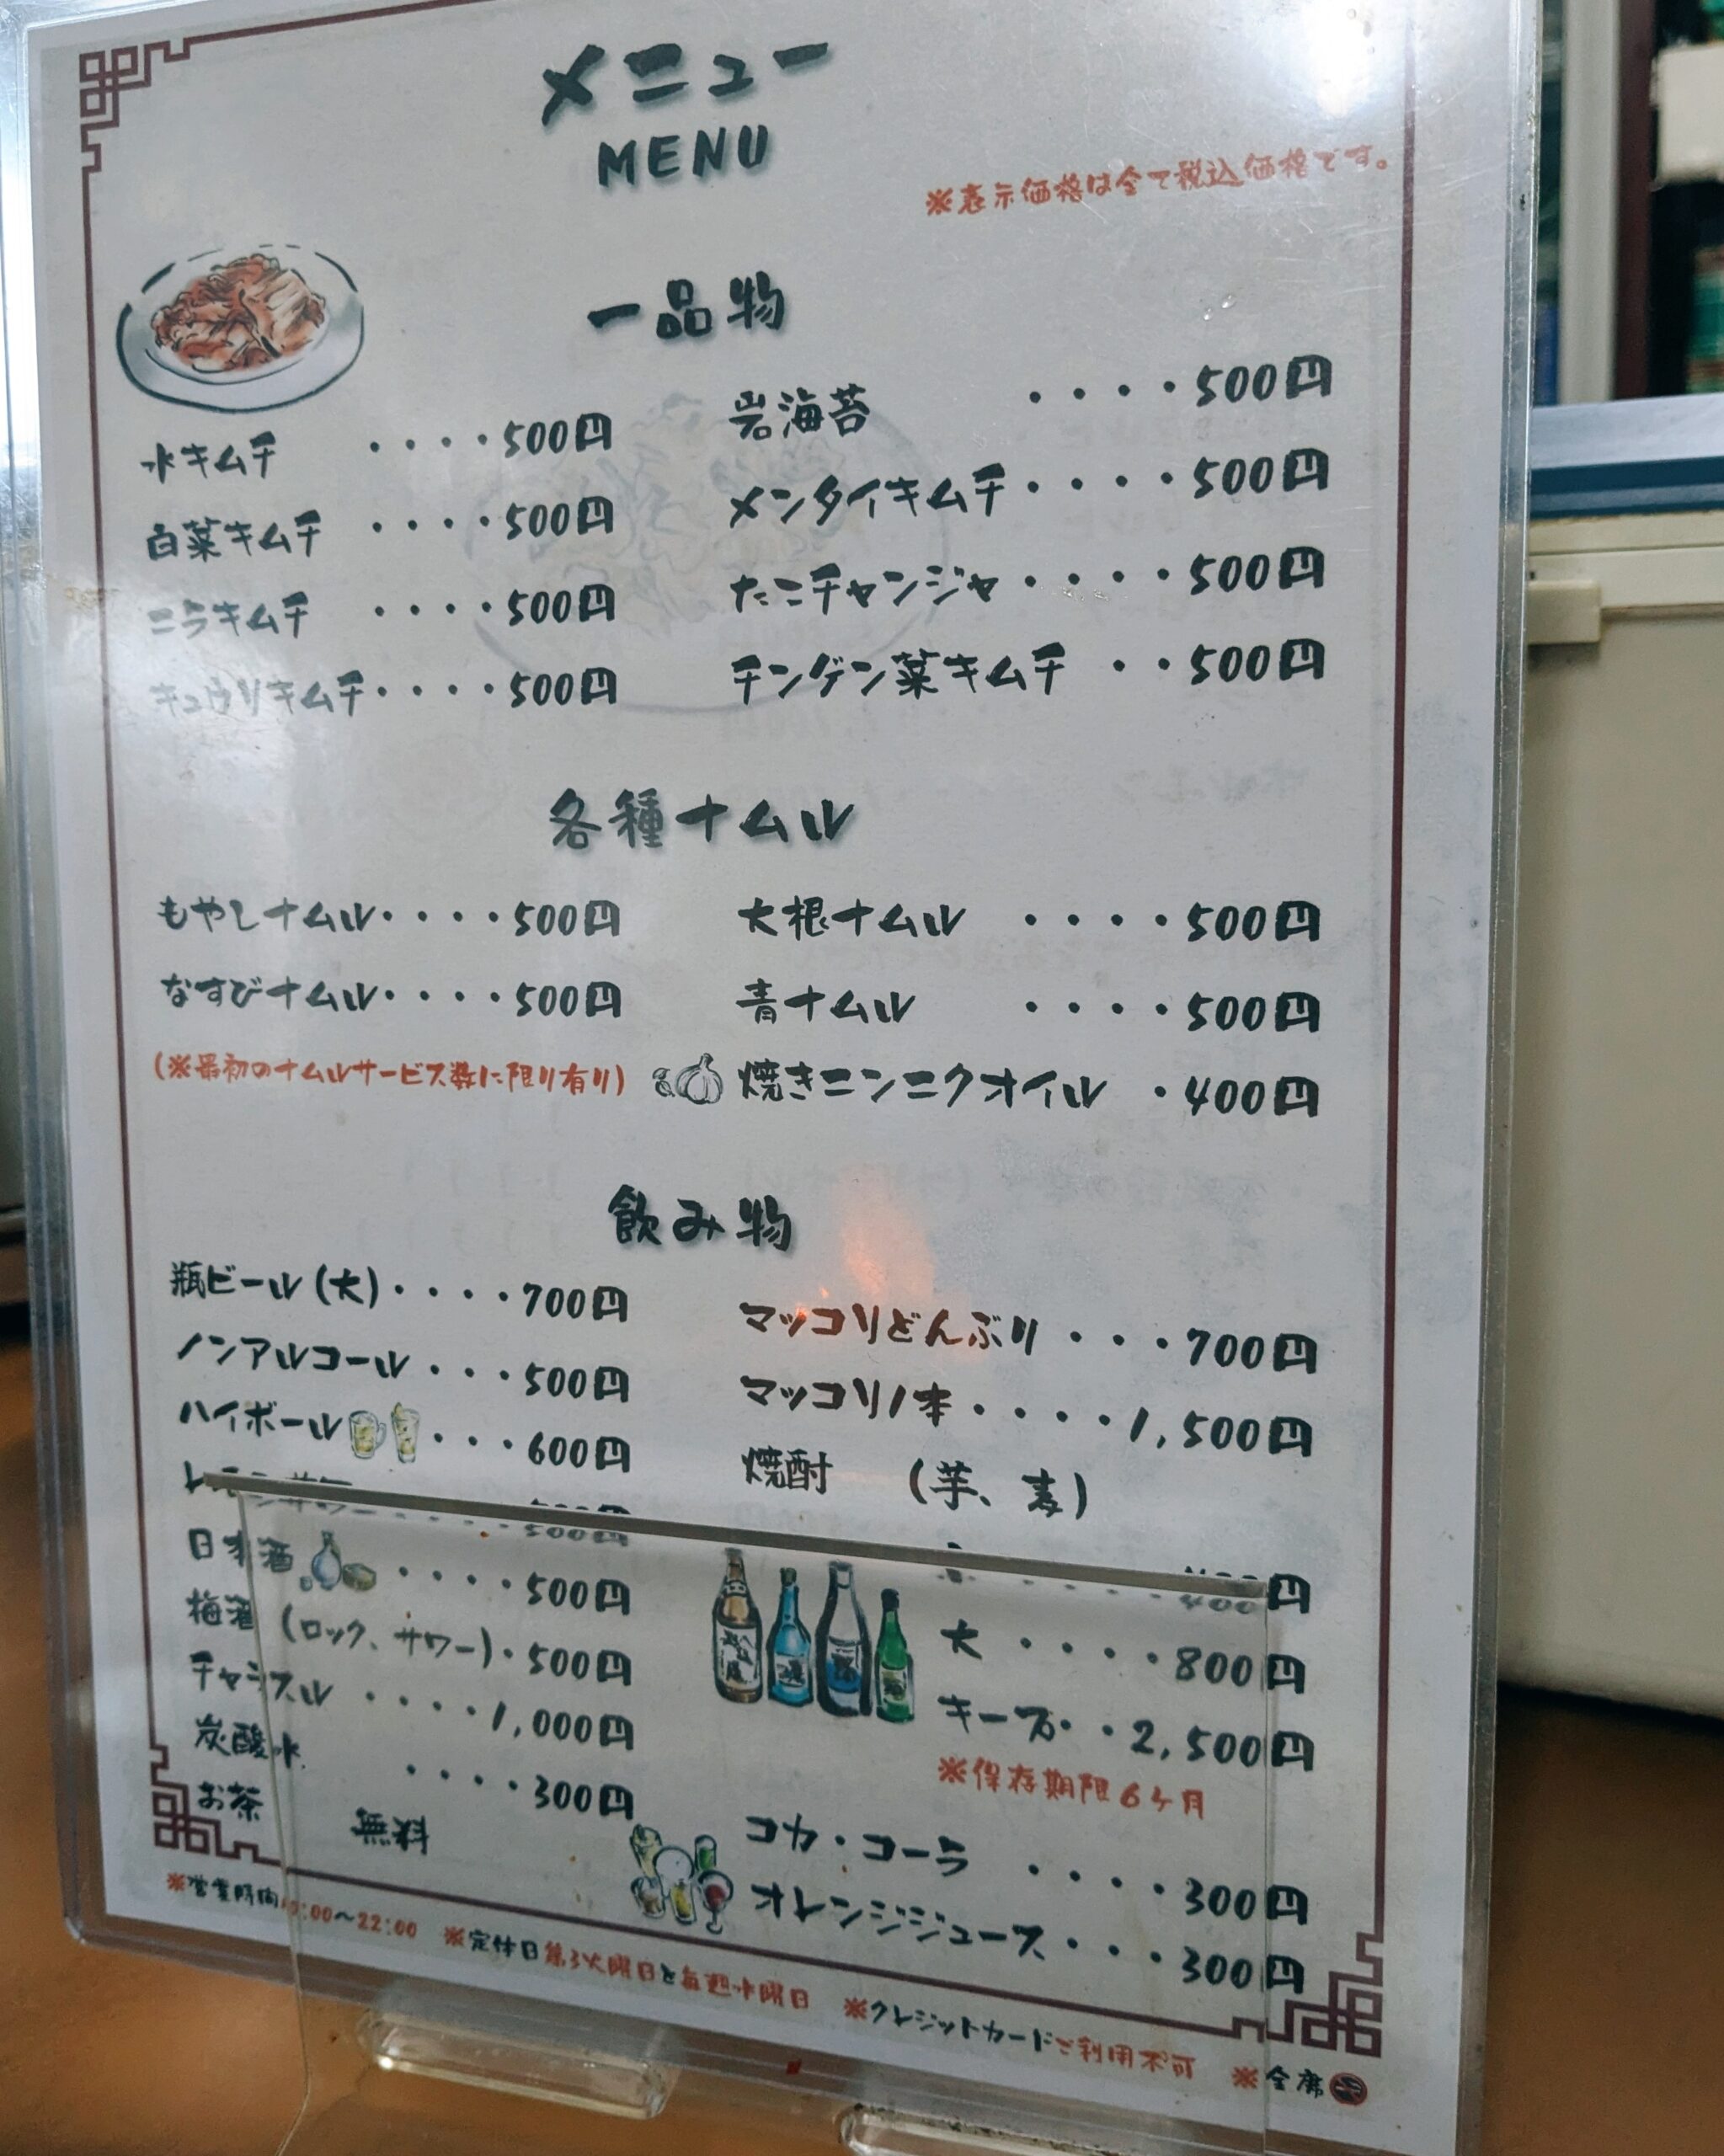 メニュー
MENU
※表示価格は全て税込価格です。
一品物
水キムチ ・・・・500円
白菜キムチ ・・・・500円
ニラキムチ ・・・・500円
キュウリキムチ・・・・500円
岩海苔 ・・・・500円
メンタイキムチ・・・・500円
たこチャンジャ・・・・500円
チンゲン菜キムチ ・・500円
各種ナムル
もやしナムル・・・・500円
なすびナムル・・・・500円
(※最初のナムルサービス数に限り有り)
大根ナムル ・・・・500円
青ナムル ・・・・500円
焼きニンニクオイル ・400円
飲み物
瓶ビール(大)・・・・700円
ノンアルコール・・・500円
ハイボール・・・600円
日本酒・・・・500円
梅酒 (ロック、サワー)・500円
チャミスル ・・・・1,000円
炭酸水 ・・・・300円
お茶 無料
マッコリどんぶり・・・700円
マッコリ1本・・・・1,500円
焼酎 (芋、麦)
・・・・400円
大 ・・・・800円
キープ・・2,500円
※保存期限6ケ月
コカ・コーラ ・・・・300円
オレンジジュース・・・300円
※営業時間 :00〜22:00 ※定休日第3火曜日と毎週水曜日 ※クレジットカードご利用不可 ※全席